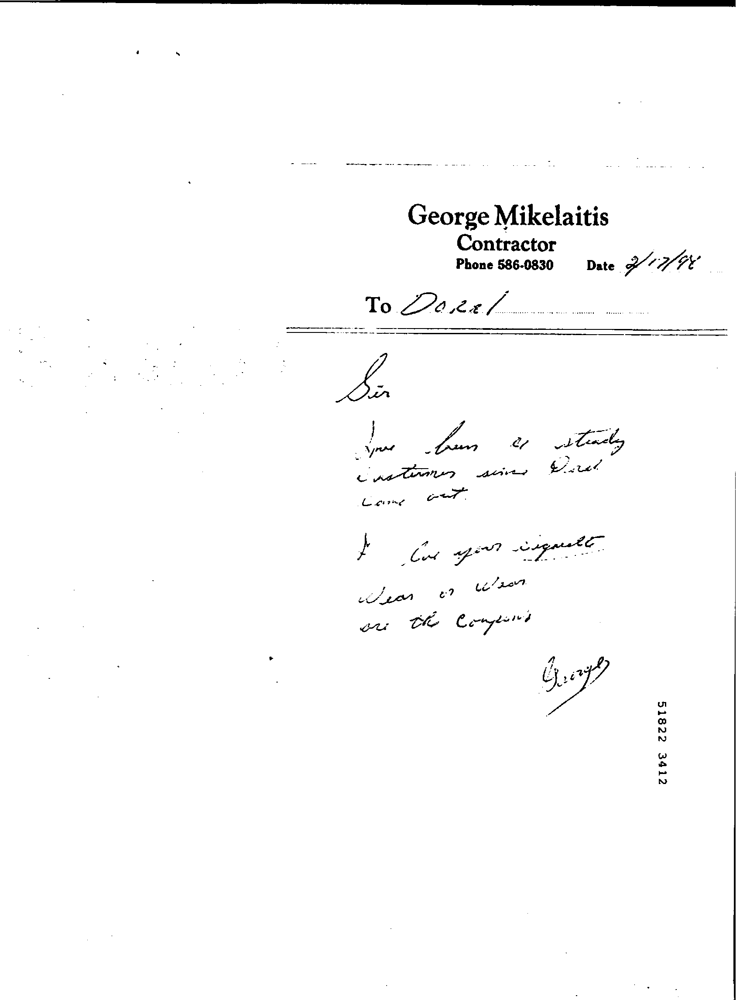 George Mikelaitis
Contractor
Phone 586-0830 Date 2/17/94
To Doral
Sir
been a steady
customer since Doral
came out.
I your
Wear or Wear
are the Coupons
George
51822 3412